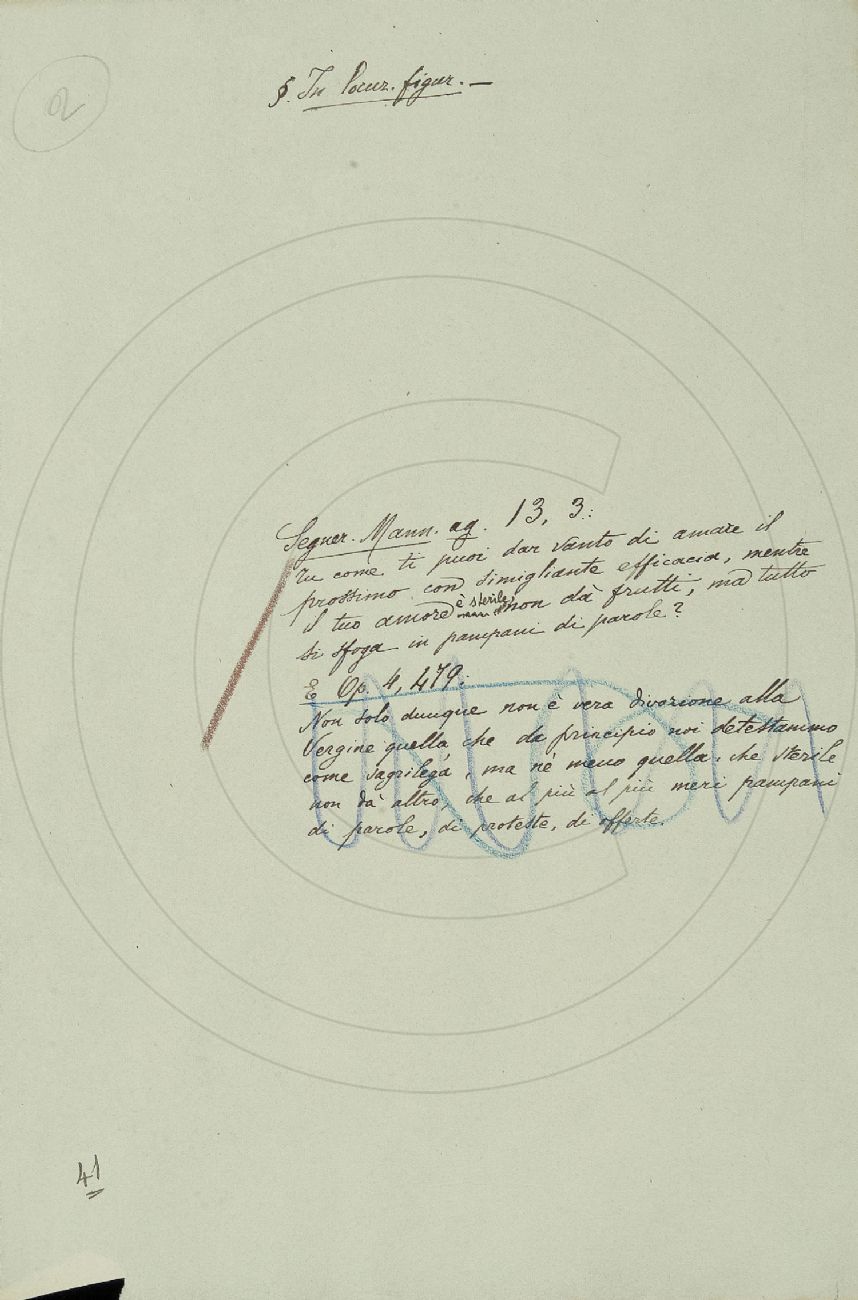 2
§. In locuz. figur. —
Segner. Mann. ag. 13, 3:
Tu come ti puoi dar vanto di amare il
prossimo con simigliante efficacia, mentre
il tuo amore è sterile, non dà frutti, ma tutto
si sfoga in pampani di parole?
E Op. 4, 479:
Non solo dunque non è vera divozione alla
Vergine quella, che da principio noi detestammo
come sagrilega, ma nè meno quella, che sterile
non dà altro, che al più al più meri pampani
di parole, di proteste, di offerte.
41